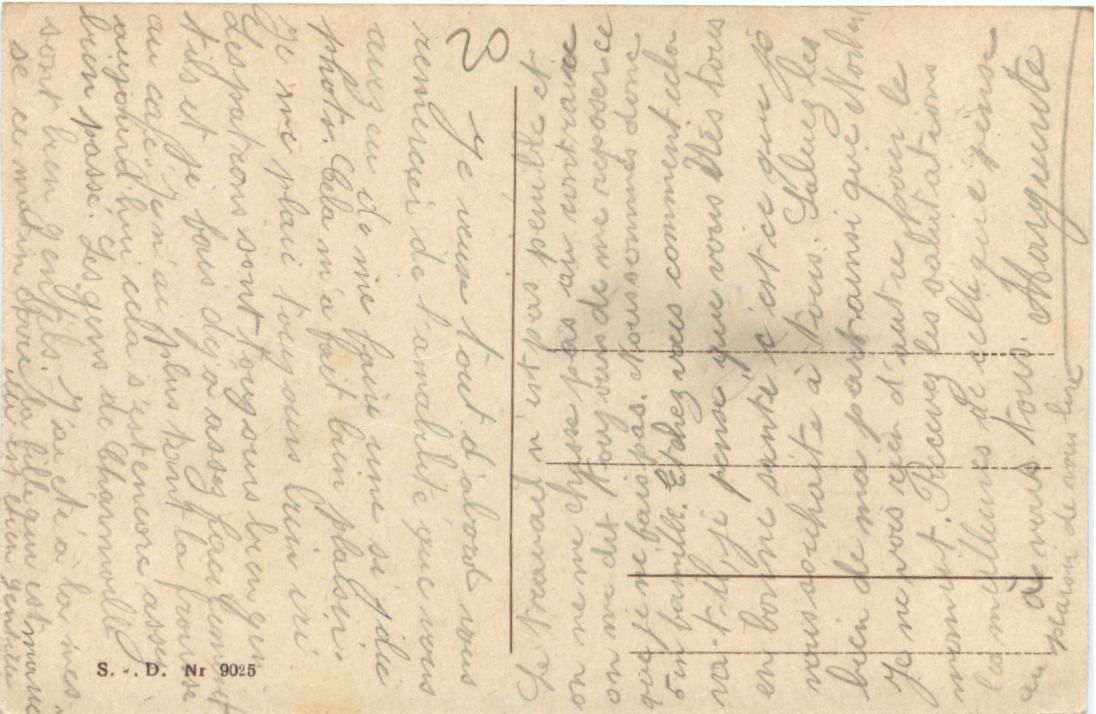 2
Je veux tout d'abord vous
remerci de l'amabilité que vous
avez eu de me faire une si jolie
photo. Cela m'a fait bien plaisir.
Je me plai toujours bien ici.
Les patrons sont toujours bien gen
tils et je fais déjà assez
au café. Je n'ai plus tant la frousse
aujourd'hui cela s'est encore assez
bien passé. Les gens de Charmoille
sont bien gentils. J'ai été à la mes
se ce matin avec la fille qui est
elle est bien gentille
Le travail n'est pas pénible et
on ne me chasse pas au contraire
on me dit toujours de me reposer ce
que je ne fais pas. Nous sommes donc
en famille. Et chez vous comment cela
va-t-il, je pense que vous êtes tous
en bonne santé c'est ce que je
vous souhaite à tous. Saluez les
bien de ma part ainsi que
Je ne vois rien d'autre pour le
moment. Recevez les salutations
les meilleures de celle qui pense
à vous tous. Marguerite
au plaisir de vous lire
S. . D. Nr 9025